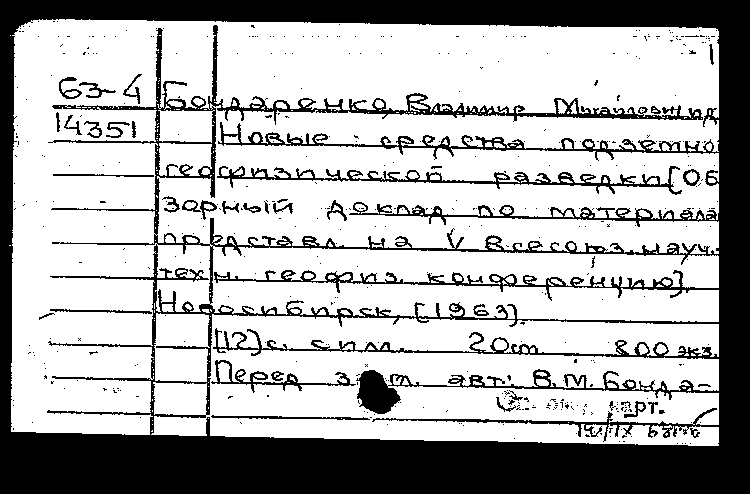 63-4 Бондаренко, Владимир Михайлович
14351 Новые средства подземно
геофизической разведки [Об
зорный доклад по материала
представл. на V Всесоюз. науч.-
техн. геофиз. конференцию].
Новосибирск, [1963].
[12] с. с илл. 20 cm 800 экз.
Перед загл. авт: В.М. Бонда-
карт.